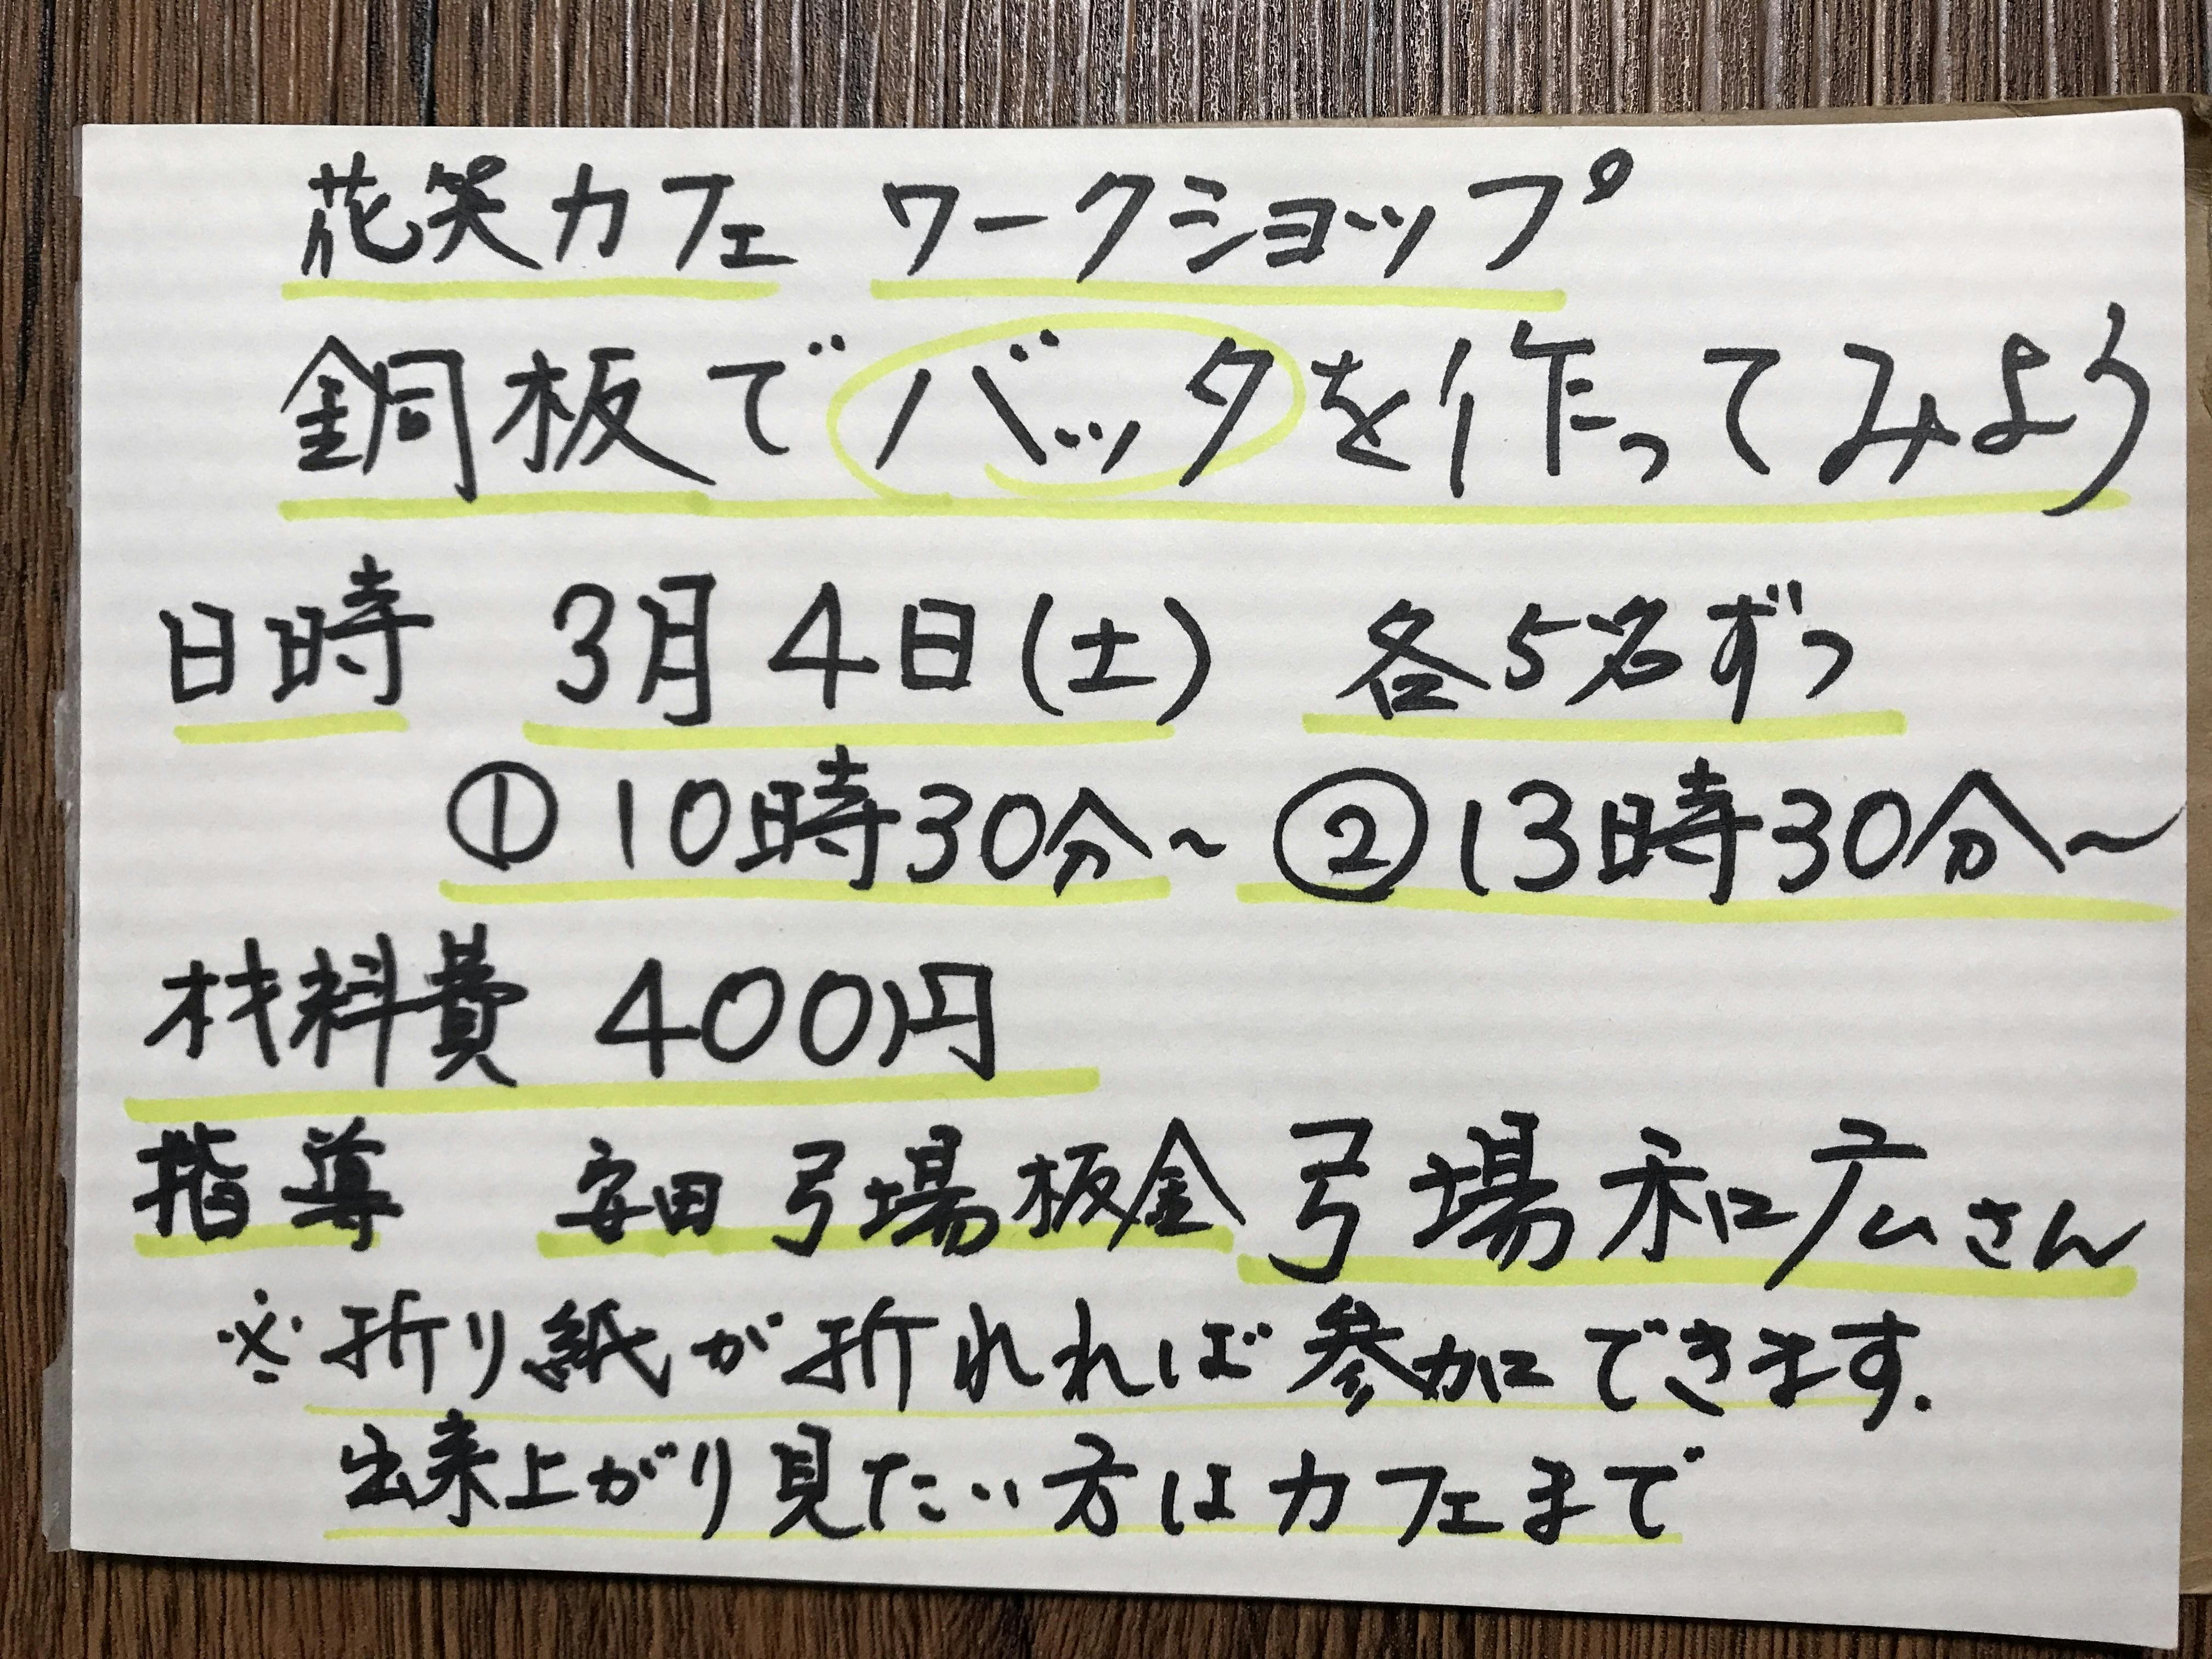 花笑カフェ ワークショップ
銅板でバッタを作ってみよう
日時 3月4日(土) 各5名ずつ
①10時30分~ ②13時30分~
材料費 400円
指導 安田 弓場板金 弓場和広さん
※折り紙が折れれば参加できます.
出来上がり見たい方はカフェまで